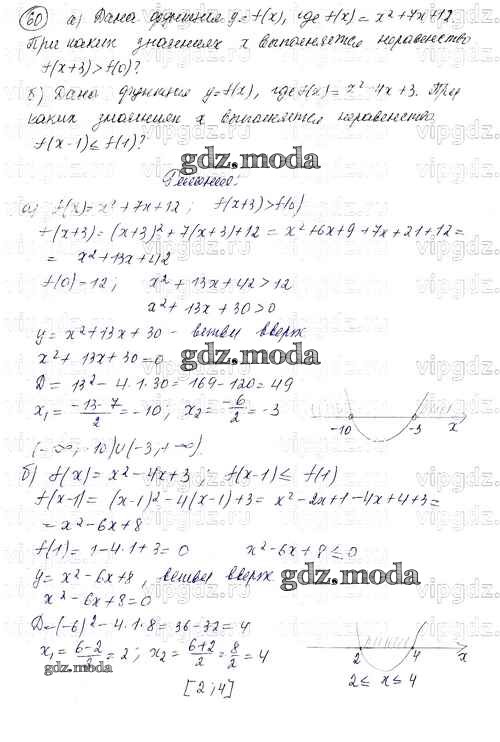 60 а) Дана функция y=f(x), где f(x)=x²+7x+12.
При каких значениях x выполняется неравенство
f(x+3)>f(0)?
б) Дана функция y=f(x), где f(x)=x²-4x+3. При
каких значениях x выполняется неравенство
f(x-1)≤f(1)?
gdz.moda
Решение:
а) f(x)=x²+7x+12; f(x+3)>f(0)
f(x+3)=(x+3)²+7(x+3)+12=x²+6x+9+7x+21+12=
= x²+13x+42
f(0)=12; x²+13x+42>12
x²+13x+30>0
y=x²+13x+30 - ветви вверх
x²+13x+30=0
gdz.moda
D=13²-4·1·30=169-120=49
x₁=(-13-7)/2=-10; x₂=-6/2=-3
-10 -3 x
(-∞;-10)∪(-3;+∞)
б) f(x)=x²-4x+3; f(x-1)≤f(1)
f(x-1)=(x-1)²-4(x-1)+3=x²-2x+1-4x+4+3=
=x²-6x+8
f(1)=1-4·1+3=0 x²-6x+8≤0
y=x²-6x+8, ветви вверх
gdz.moda
x²-6x+8=0
D=(-6)²-4·1·8=36-32=4
x₁=(6-2)/2=2; x₂=(6+2)/2=8/2=4
2 4 x
gdz.moda
2≤x≤4
[2;4]